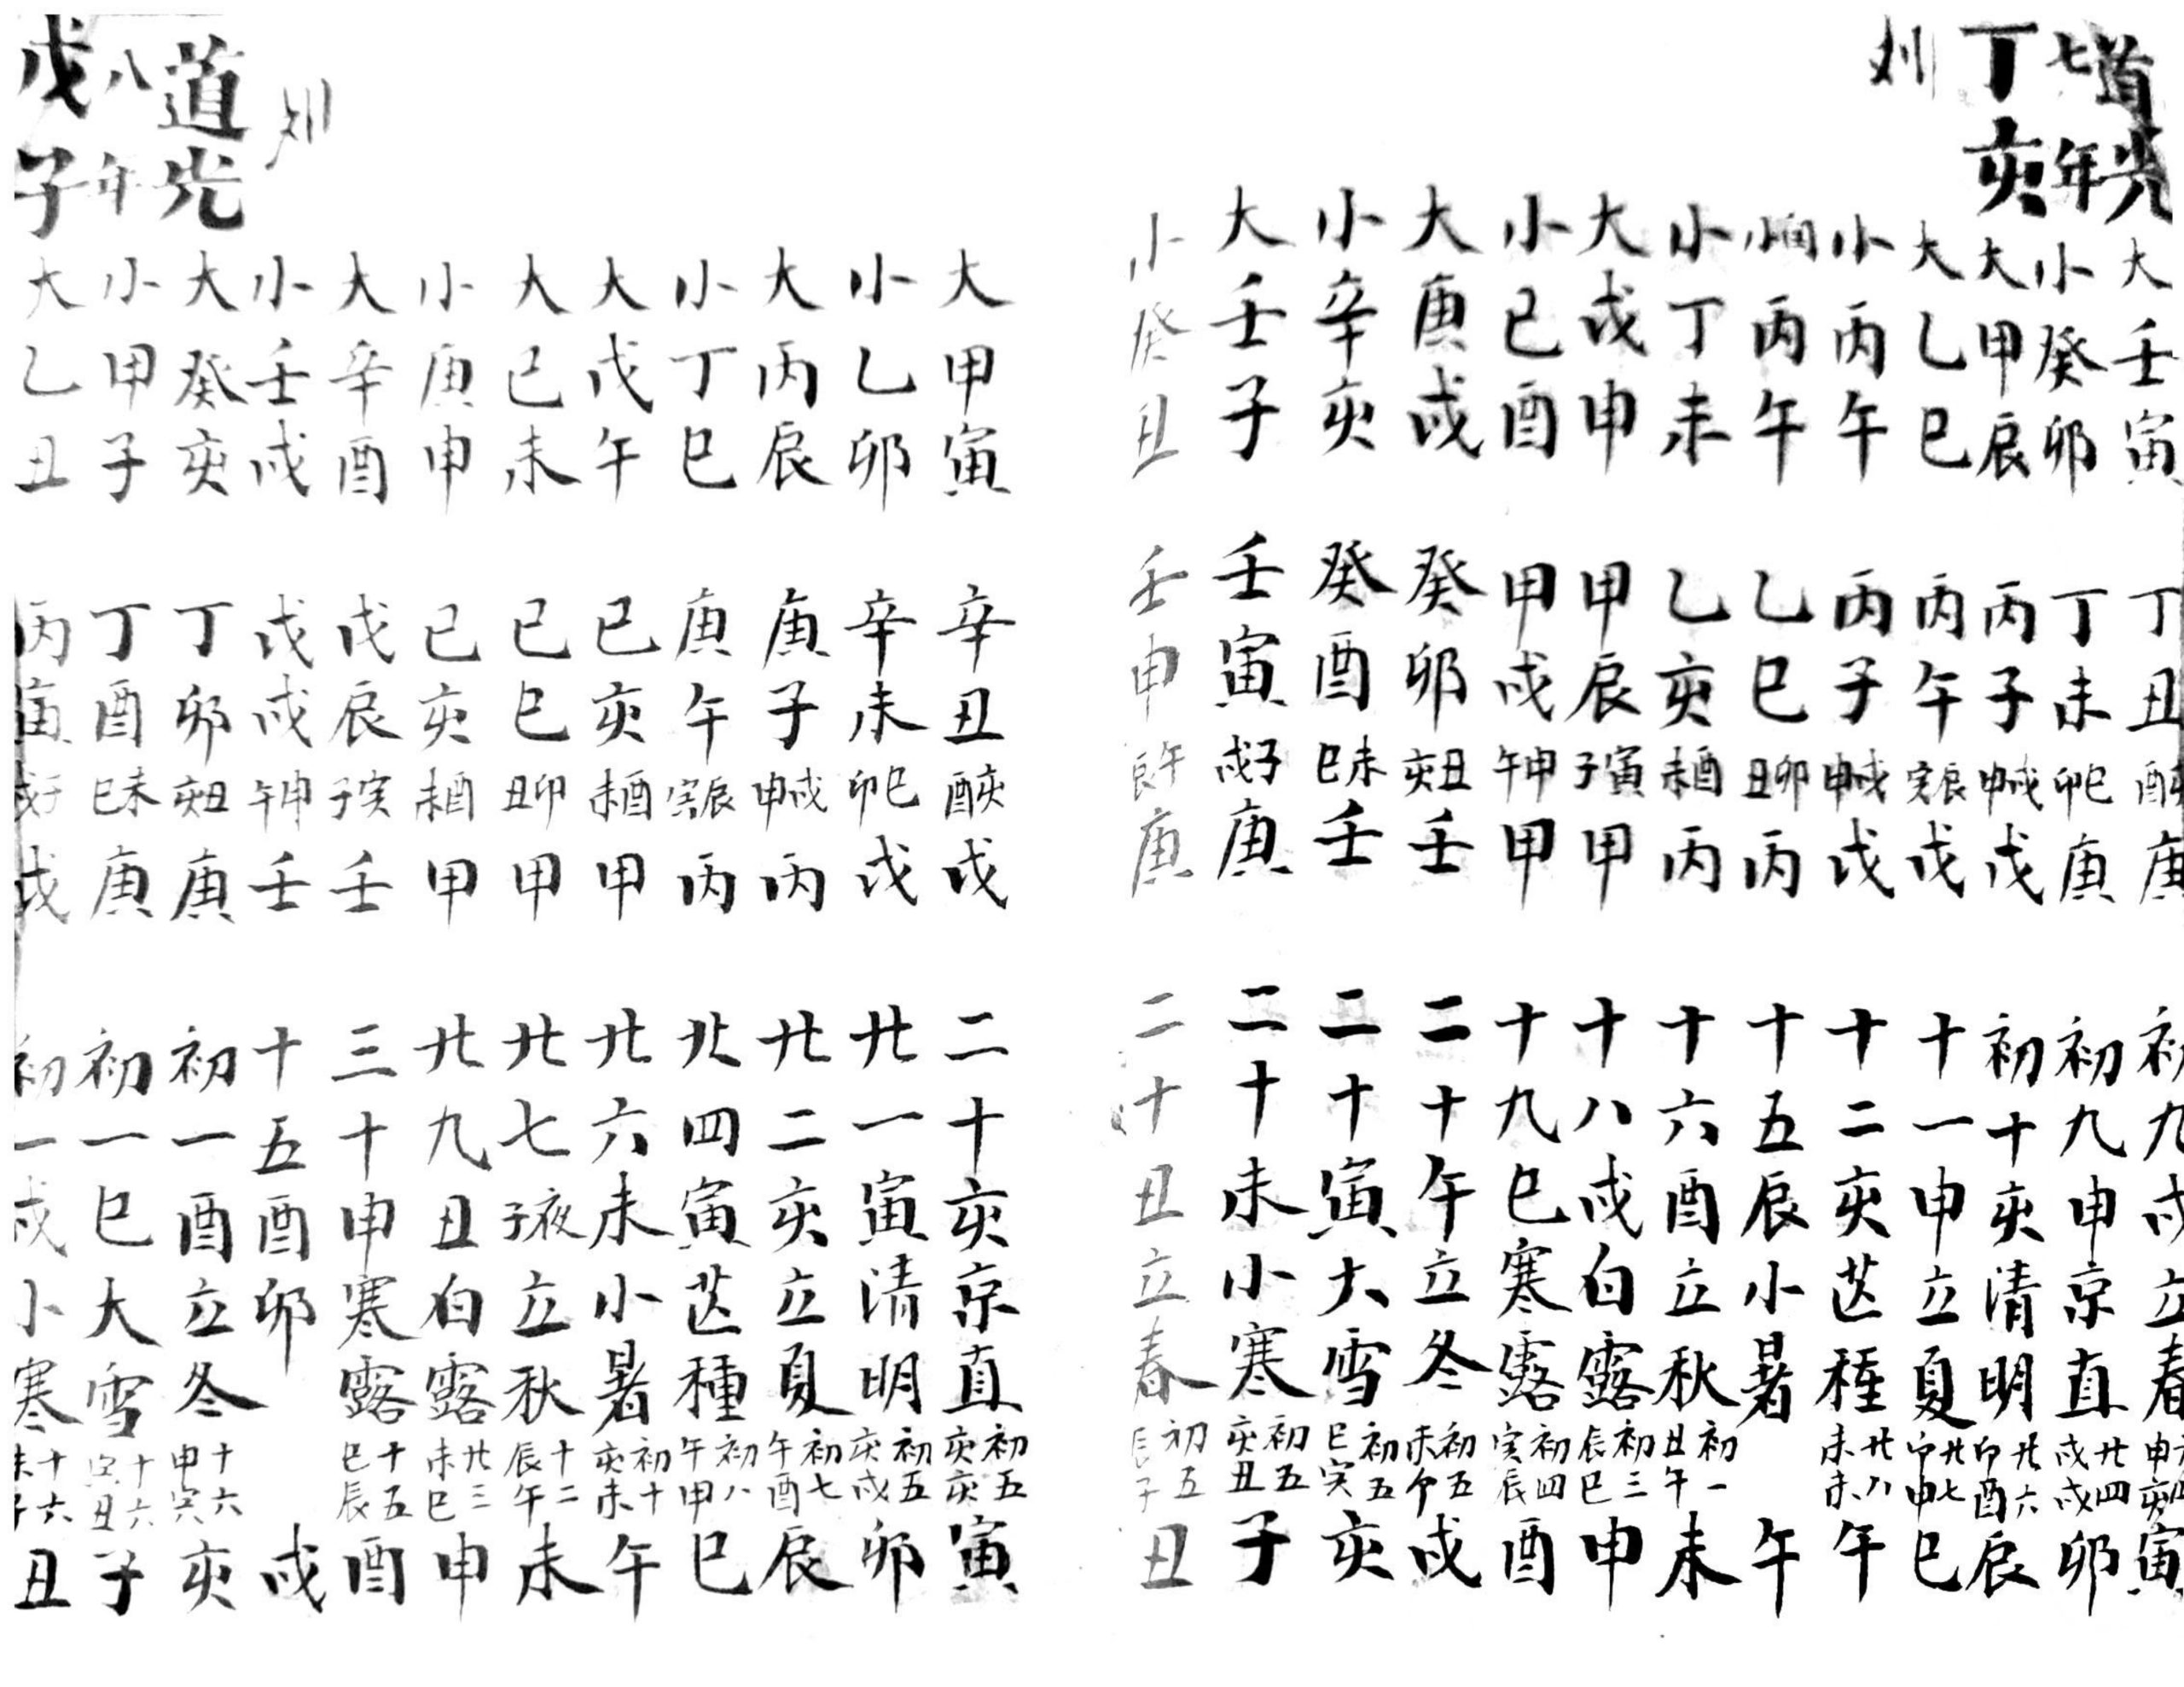 道光
七年
丁亥
刘
大壬寅 丁丑亥酉庚 初九戌立春申亥寅
小癸卯 丁未巳卯庚 初九申京直廿四戌戌卯
大甲辰 丙子戌申戊 初十亥清明廿六卯酉辰
大乙巳 丙午辰寅戊 十一申立夏廿七卯申巳
小丙午 丙子戌申戊 十二亥芒種廿八未未午
小閏丙午 乙巳卯丑丙 十五辰小暑午
小丁未 乙亥酉未丙 十六酉立秋初一丑午未
大戊申 甲辰寅子甲 十八戌白露初三辰巳申
小己酉 甲戌申午甲 十九巳寒露初四寅辰酉
大庚戌 癸卯丑亥壬 二十午立冬初五未午戌
小辛亥 癸酉未巳壬 二十寅大雪初五巳寅亥
大壬子 壬寅子戌庚 二十未小寒初五亥丑子
小癸丑 壬申午辰庚 二十丑立春初五辰子丑
刘
道光
八年
戊子
大甲寅 辛丑亥酉戊 二十亥京直初五亥亥寅
小乙卯 辛未巳卯戊 廿一寅清明初五亥戌卯
大丙辰 庚子戌申丙 廿二亥立夏初七午酉辰
小丁巳 庚午辰寅丙 廿四寅芒種初八午申巳
大戊午 己亥酉未甲 廿六未小暑初十亥未午
大己未 己巳卯丑甲 廿七夜子立秋十二辰午未
小庚申 己亥酉未甲 廿九丑白露廿三未巳申
大辛酉 戊辰寅子壬 三十申寒露十五巳辰酉
小壬戌 戊戌申午壬 十五酉卯戌
大癸亥 丁卯丑亥庚 初一酉立冬十六申寅亥
小甲子 丁酉未巳庚 初一巳大雪十六寅丑子
大乙丑 丙寅子戌戊 初一戌小寒十六未子丑